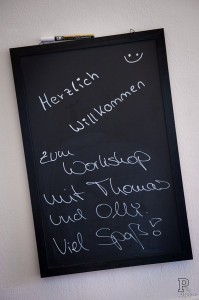 Herzlich
Willkommen
zum
Workshop
mit Thomas
und Olli.
Viel Spaß!